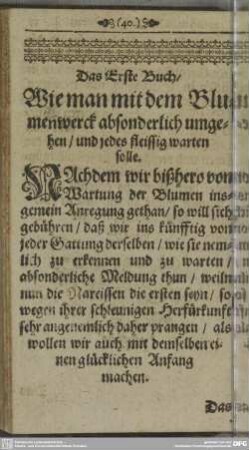 (40.)
Das Erste Buch/
Wie man mit dem Blu-
menwerck absonderlich umge-
hen / und jedes fleissig warten
solle.
NAchdem wir bißhero von
Wartung der Blumen ins-
gemein Anregung gethan / so will sich
gebühren / daß wir ins künfftig von
jeder Gattung derselben / wie sie nem-
lich zu erkennen und zu warten /
absonderliche Meldung thun / weiln
nun die Narcissen die ersten seyn / so
wegen ihrer schleunigen Herfürkunfft
sehr angenemlich daher prangen / als
wollen wir auch mit demselben ei-
nen glücklichen Anfang
machen.
Das